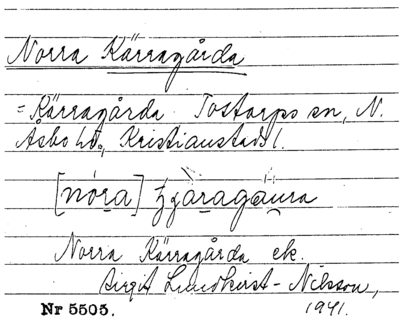 Norra Kärragårda
= Kärragårda Tostarps sn, N.
Åsbo hd., Kristianstads l.
[nóra]
Norra Kärragårda ek.
Birgit Lundkvist-Nilsson,
1941.
Nr 5505.